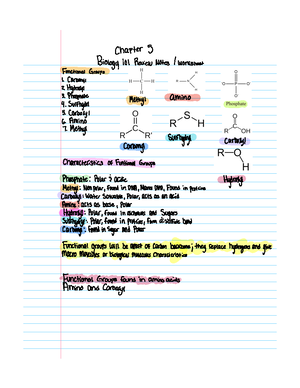 Chapter 3
Biology 101 Review Notes / Worksheet
Functional Groups
1. Carbonyl
2. Hydroxyl
3. Phosphate
4. Sulfhydryl
5. Carboxyl
6. Amino
7. Methyl
Methyl
Amino
Phosphate
Carbonyl
Sulfhydryl
Carboxyl
Hydroxyl
Characteristics of Functional Groups
Phosphate: Polar & acidic
Methyl: Non polar, Found in DNA, Found in proteins
Carboxyl: Water Soluable, Polar, acts as an acid
Amino: acts as base, Polar
Hydroxyl: Polar, Found in alcohols and Sugars
Sulfhydryl: Polar, found in proteins, Form disulfide bond
Carbonyl: Found in Sugar and Polar
Functional groups will be apart of Carbon backbone; they replace hydrogens and give
Macro Molecules or biological Molecules Characteristics
Functional Groups found in amino acids
Amino and Carboxyl